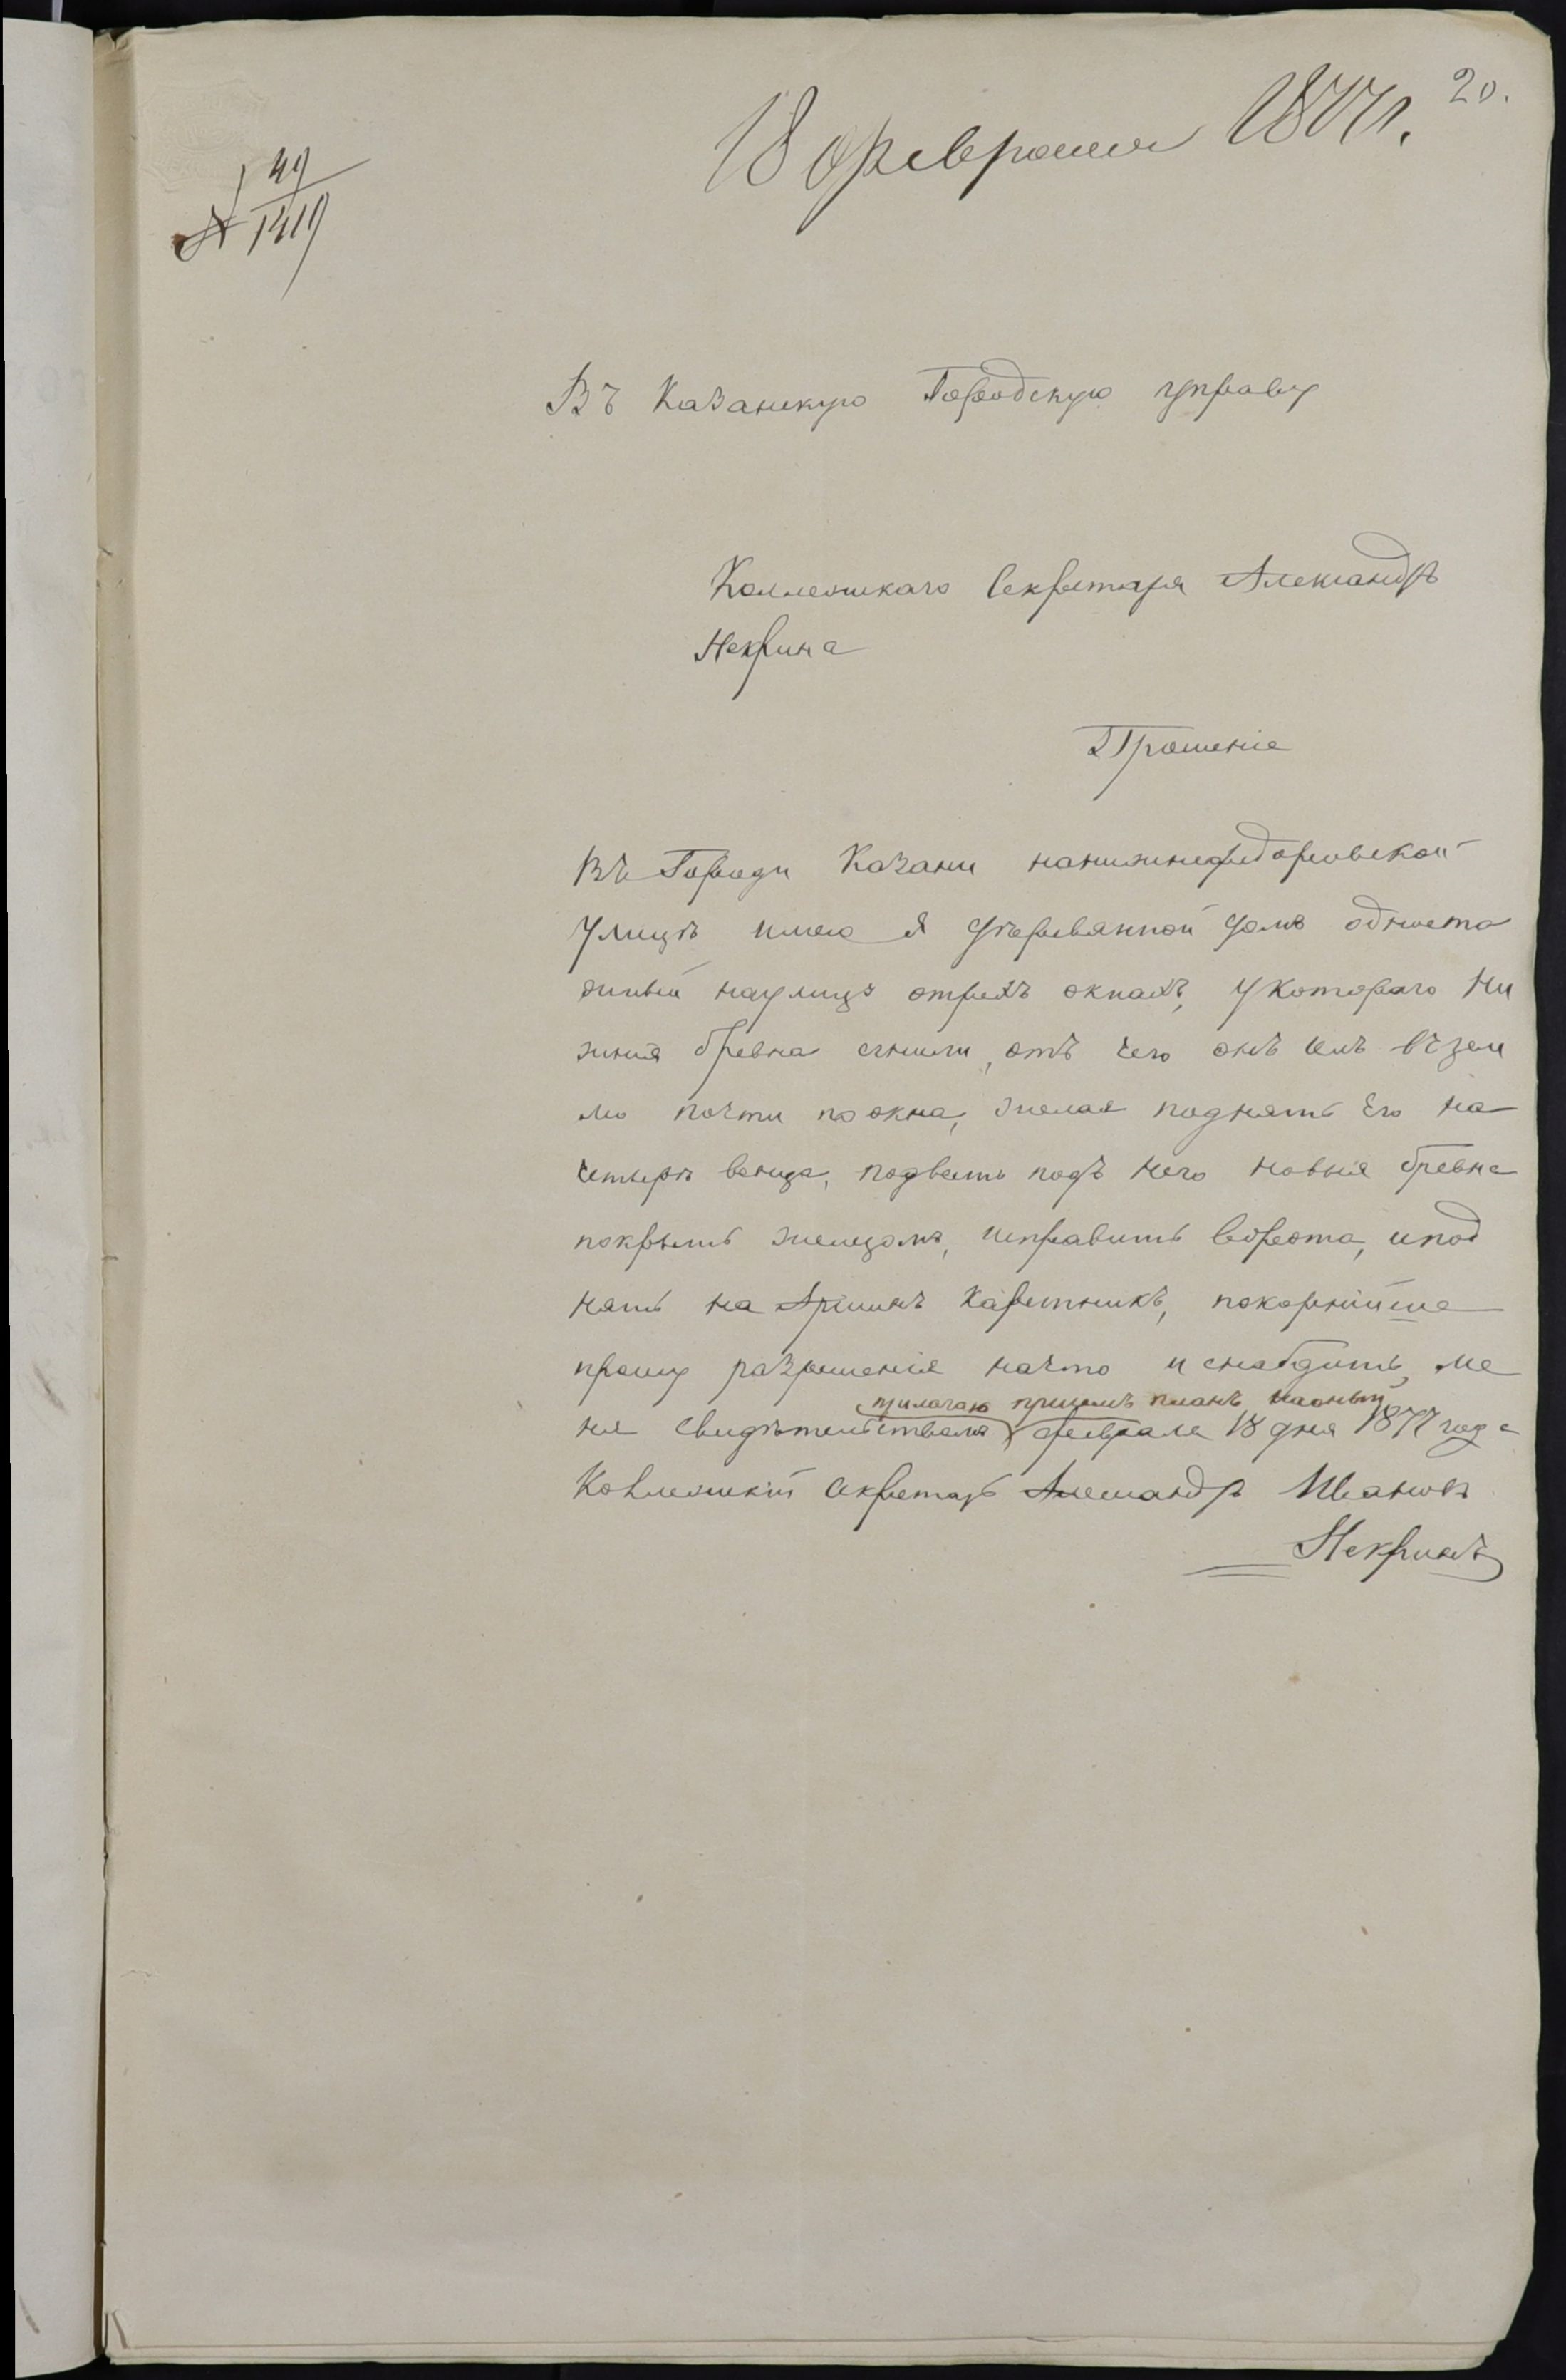 18 февраля 1877 г. 20.
49
№ 1419
Въ Казанскую Городскую управу
Коллежскаго Секретаря Александръ
Некрина
Прошеніе
Въ Городи Казани нанижнефедоровской
Улицѣ имею я дѣревянной домъ одноета
жный наулицъ отрехъ окнахъ, укотораго ни
жнія бревна сгнили, отъ чего онъ селъ взем
лю почти по окна, желая поднять его на
четырѣ венца, подвесть подъ него новыя бревна
покрыть желѣзомъ, исправить ворота, и под
нять на Аршинъ Каретникъ, покорнѣйше
прошу разрешенія начто и снабдить, ме
прилагаю присемъ планъ
ня свидѣтельствомъ февраля 18 дня 1877 года
Коллежскій Секретарь Александръ Ивановъ
Некринъ